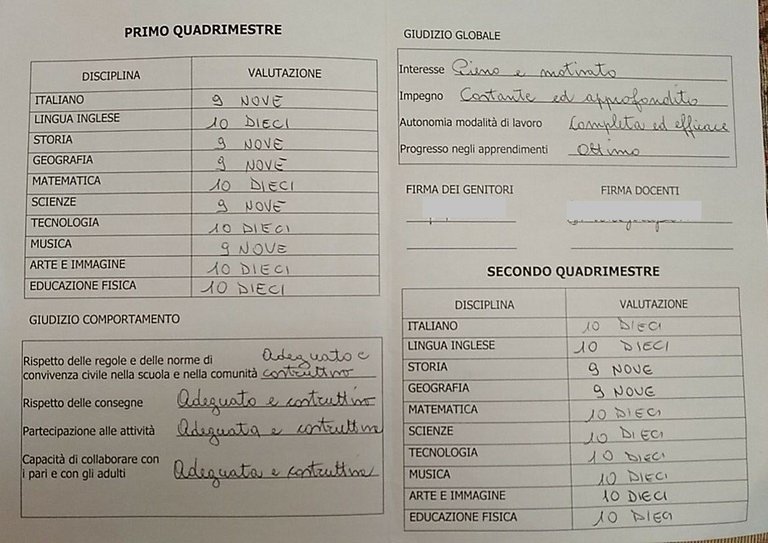 PRIMO QUADRIMESTRE
DISCIPLINA VALUTAZIONE
ITALIANO 9 NOVE
LINGUA INGLESE 10 DIECI
STORIA 9 NOVE
GEOGRAFIA 9 NOVE
MATEMATICA 10 DIECI
SCIENZE 9 NOVE
TECNOLOGIA 10 DIECI
MUSICA 9 NOVE
ARTE E IMMAGINE 10 DIECI
EDUCAZIONE FISICA 10 DIECI
GIUDIZIO COMPORTAMENTO
Rispetto delle regole e delle norme di Adeguato e
convivenza civile nella scuola e nella comunità costruttivo
Rispetto delle consegne Adeguato e costruttivo
Partecipazione alle attività Adeguata e costruttiva
Capacità di collaborare con
i pari e con gli adulti Adeguata e costruttiva
GIUDIZIO GLOBALE
Interesse Pieno e motivato
Impegno Costante ed approfondito
Autonomia modalità di lavoro Completa ed efficace
Progresso negli apprendimenti Ottimo
FIRMA DEI GENITORI FIRMA DOCENTI
SECONDO QUADRIMESTRE
DISCIPLINA VALUTAZIONE
ITALIANO 10 DIECI
LINGUA INGLESE 10 DIECI
STORIA 9 NOVE
GEOGRAFIA 9 NOVE
MATEMATICA 10 DIECI
SCIENZE 10 DIECI
TECNOLOGIA 10 DIECI
MUSICA 10 DIECI
ARTE E IMMAGINE 10 DIECI
EDUCAZIONE FISICA 10 DIECI